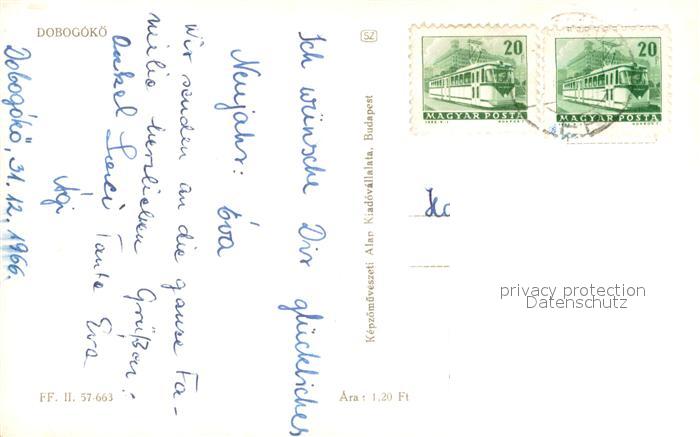 DOBOGÓKŐ
SZ
Dobogókő, 31. 12. 1966.
Ich wünsche Dir glückliches
Neujahr: Éva
Wir senden an die ganze Fa-
milie herzlichen Grüßen:
Onkel Laci Tante Eva
Ági
FF. II. 57-663
Ára: 1,20 Ft
Képzőművészeti Alap Kiadóvállalata, Budapest
20
MAGYAR POSTA
20
MAGYAR POSTA
privacy protection
Datenschutz